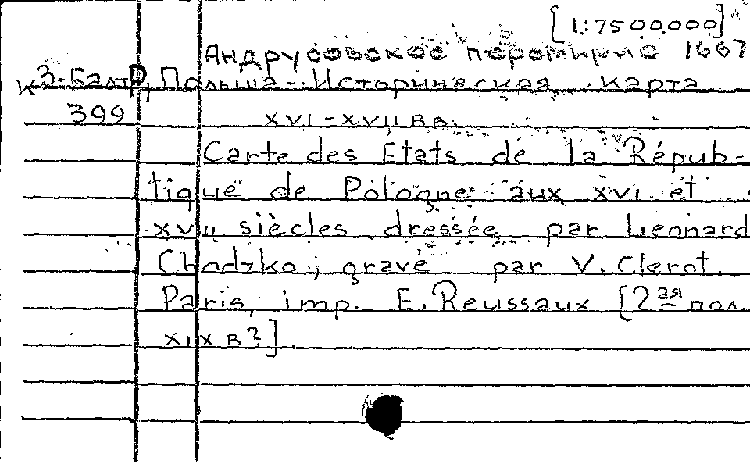 [1:7500.000]
Андрусовское перемирие 1667
К 3-Балт, Польша - Историческая карта
399 XVI - XVII вв.
Carte des Etats de la Répub-
lique de Pologne aux XVI et
XVII siècles dressée par Leonard
Chodzko; gravé par V. Clerot.
Paris, imp. E. Reussaux [2ая пол.
XIX в?].